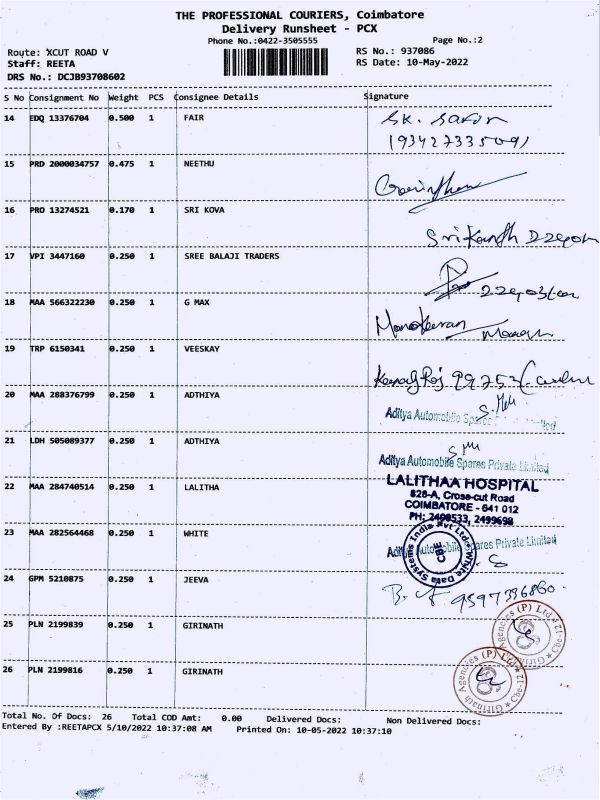 THE PROFESSIONAL COURIERS, Coimbatore
Delivery Runsheet - PCX
Phone No.:0422-3505555
Page No.:2
Route: XCUT ROAD V
RS No.: 937086
Staff: REETA
RS Date: 10-May-2022
DRS No.: DCJB93708602
S No Consignment No Weight PCS Consignee Details Signature
14 EDQ 13376704 0.500 1 FAIR
15 PRD 2000034757 0.475 1 NEETHU
16 PRO 13274521 0.170 1 SRI KOVA
17 VPI 3447160 0.250 1 SREE BALAJI TRADERS
18 MAA 566322230 0.250 1 G MAX
19 TRP 6150341 0.250 1 VEESKAY
20 MAA 288376799 0.250 1 ADTHIYA
Aditya Automobile Spares Limited
21 LDH 505089377 0.250 1 ADTHIYA
Aditya Automobile Spares Private Limited
22 MAA 284740514 0.250 1 LALITHA
LALITHAA HOSPITAL
828-A, Cross-cut Road
COIMBATORE - 641 012
PH: 2499533, 2499698
23 MAA 282564468 0.250 1 WHITE
White Data Systems India Pvt Ltd
CBE
Spares Private Limited
24 GPM 5210875 0.250 1 JEEVA
25 PLN 2199839 0.250 1 GIRINATH
Girinath Agencies (P) Ltd Cbe-12
26 PLN 2199816 0.250 1 GIRINATH
Girinath Agencies (P) Ltd Cbe-12
Total No. Of Docs: 26 Total COD Amt: 0.00 Delivered Docs: Non Delivered Docs:
Entered By :REETAPCX 5/10/2022 10:37:08 AM Printed On: 10-05-2022 10:37:10